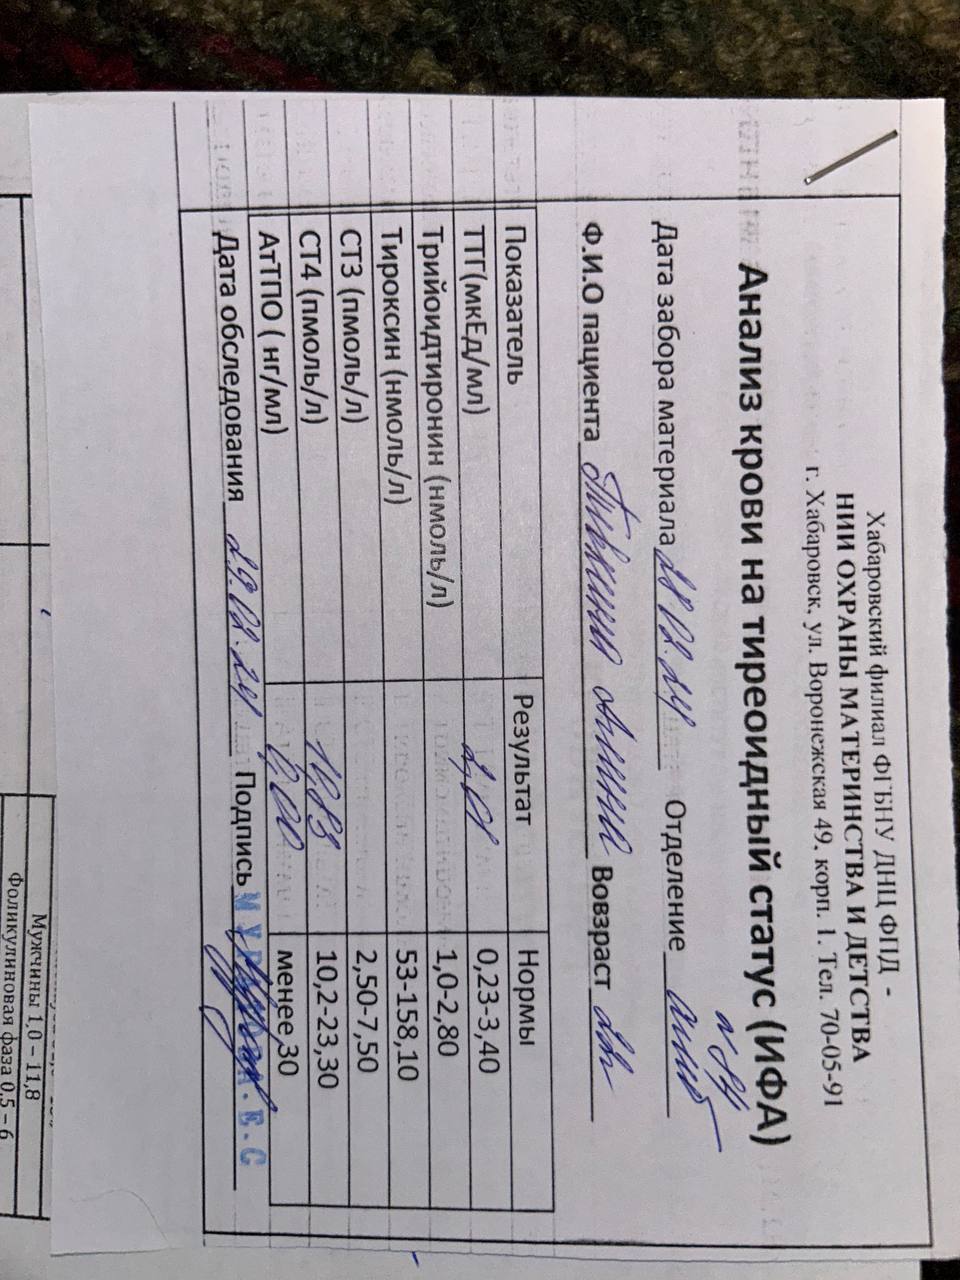 Хабаровский филиал ФГБНУ ДНЦ ФПД -
НИИ ОХРАНЫ МАТЕРИНСТВА И ДЕТСТВА
г. Хабаровск, ул. Воронежская 49. корп. 1. Тел. 70-05-91
Анализ крови на тиреоидный статус (ИФА)
Дата забора материала Отделение
Ф.И.О пациента Вовзраст
Показатель Результат Нормы
ТТГ(мкЕд/мл) 0,23-3,40
Трийоидтиронин (нмоль/л) 1,0-2,80
Тироксин (нмоль/л) 53-158,10
СТ3 (пмоль/л) 2,50-7,50
СТ4 (пмоль/л) 10,2-23,30
АтТПО ( нг/мл) менее,30
Дата обследования 29.02.24 Подпись
Мужчины 1,0 – 11,8
Фоликулиновая фаза 0,5 – 6